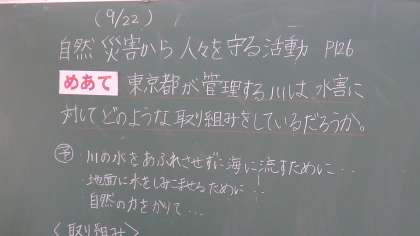 (9/22)
自然災害から人々を守る活動 P126
めあて 東京都が管理する川は、水害に
対してどのような取り組みをしているだろうか。
予 川の水をあふれさせずに海に流すために・・
地面に水をしみこませるために・・
自然の力をかりて・・・
<取り組み>